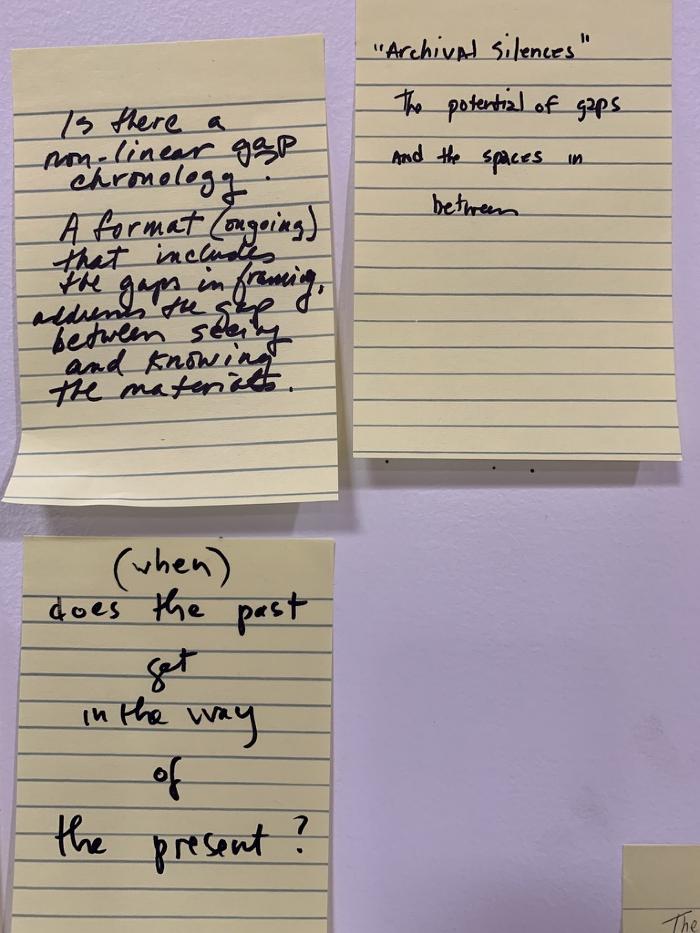 Is there a
non-linear gap
chronology.
A format (ongoing)
that includes
the gaps in framing,
address the gap
between seeing
and knowing
the materials.
"Archival Silences"
The potential of gaps
and the spaces in
between
(when)
does the past
get
in the way
of
the present?
The